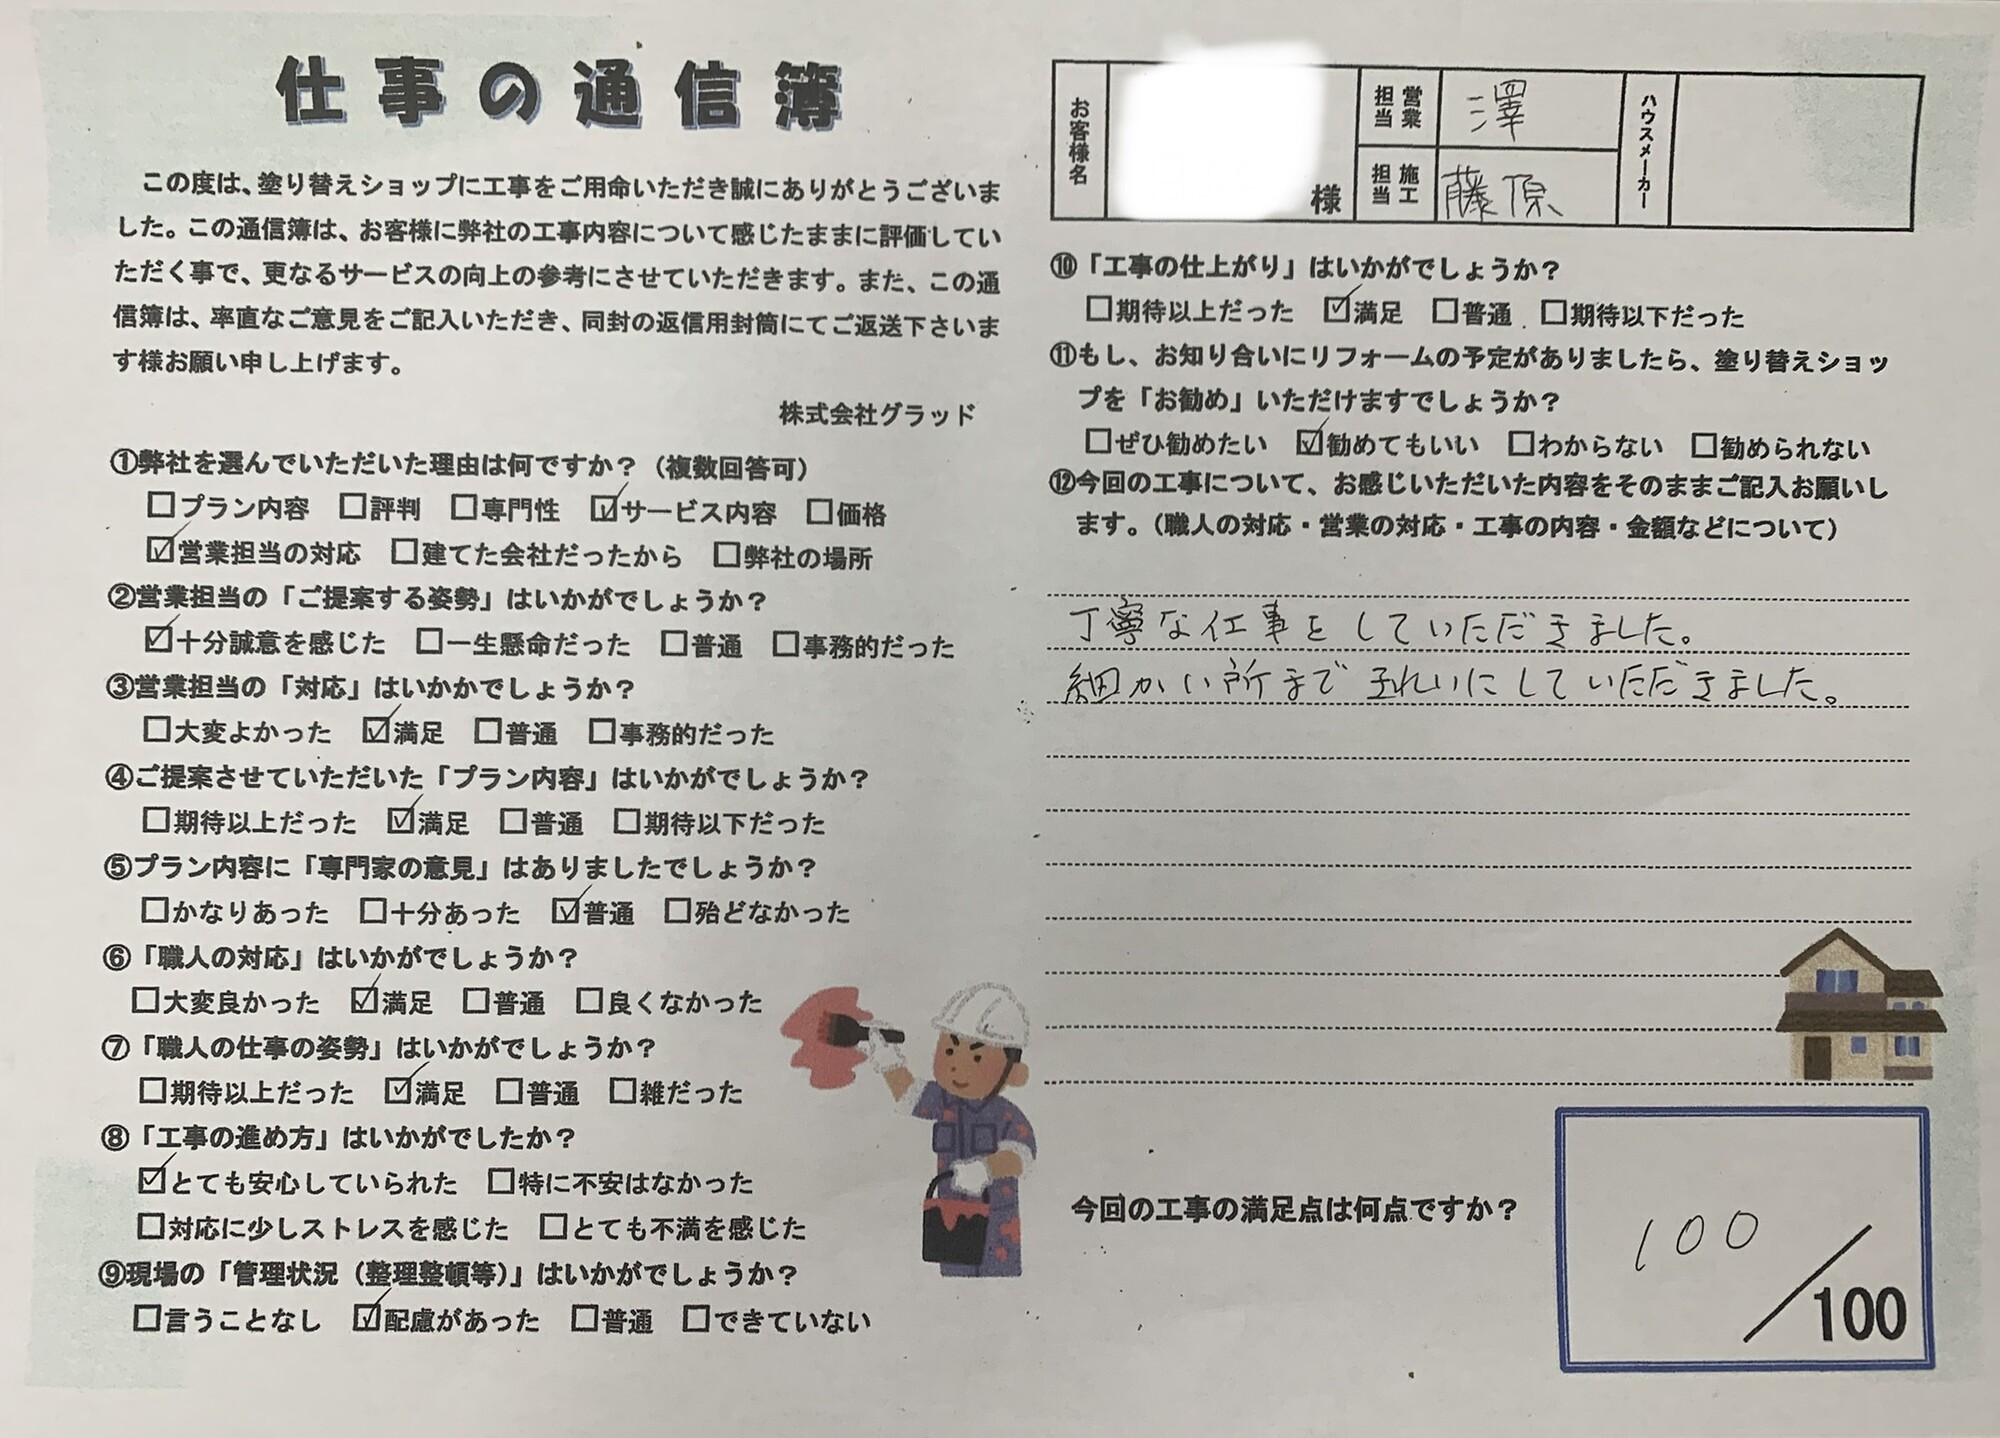 仕事の通信簿
この度は、塗り替えショップに工事をご用命いただき誠にありがとうございま
した。この通信簿は、お客様に弊社の工事内容について感じたままに評価してい
ただく事で、更なるサービスの向上の参考にさせていただきます。また、この通
信簿は、率直なご意見をご記入いただき、同封の返信用封筒にてご返送下さいま
す様お願い申し上げます。
株式会社グラッド
①弊社を選んでいただいた理由は何ですか？（複数回答可）
□プラン内容 □評判 □専門性 ☑サービス内容 □価格
☑営業担当の対応 □建てた会社だったから □弊社の場所
②営業担当の「ご提案する姿勢」はいかがでしょうか？
☑十分誠意を感じた □一生懸命だった □普通 □事務的だった
③営業担当の「対応」はいかかでしょうか？
□大変よかった ☑満足 □普通 □事務的だった
④ご提案させていただいた「プラン内容」はいかがでしょうか？
□期待以上だった ☑満足 □普通 □期待以下だった
⑤プラン内容に「専門家の意見」はありましたでしょうか？
□かなりあった □十分あった ☑普通 □殆どなかった
⑥「職人の対応」はいかがでしょうか？
□大変良かった ☑満足 □普通 □良くなかった
⑦「職人の仕事の姿勢」はいかがでしょうか？
□期待以上だった ☑満足 □普通 □雑だった
⑧「工事の進め方」はいかがでしたか？
☑とても安心していられた □特に不安はなかった
□対応に少しストレスを感じた □とても不満を感じた
⑨現場の「管理状況（整理整頓等）」はいかがでしょうか？
□言うことなし ☑配慮があった □普通 □できていない
お客様名 様 営業担当 澤 ハウスメーカー
施工担当 藤原
⑩「工事の仕上がり」はいかがでしょうか？
□期待以上だった ☑満足 □普通 □期待以下だった
⑪もし、お知り合いにリフォームの予定がありましたら、塗り替えショッ
プを「お勧め」いただけますでしょうか？
□ぜひ勧めたい ☑勧めてもいい □わからない □勧められない
⑫今回の工事について、お感じいただいた内容をそのままご記入お願いし
ます。（職人の対応・営業の対応・工事の内容・金額などについて）
丁寧な仕事をしていただきました。
細かい所まできれいにしていただきました。
今回の工事の満足点は何点ですか？
100／100